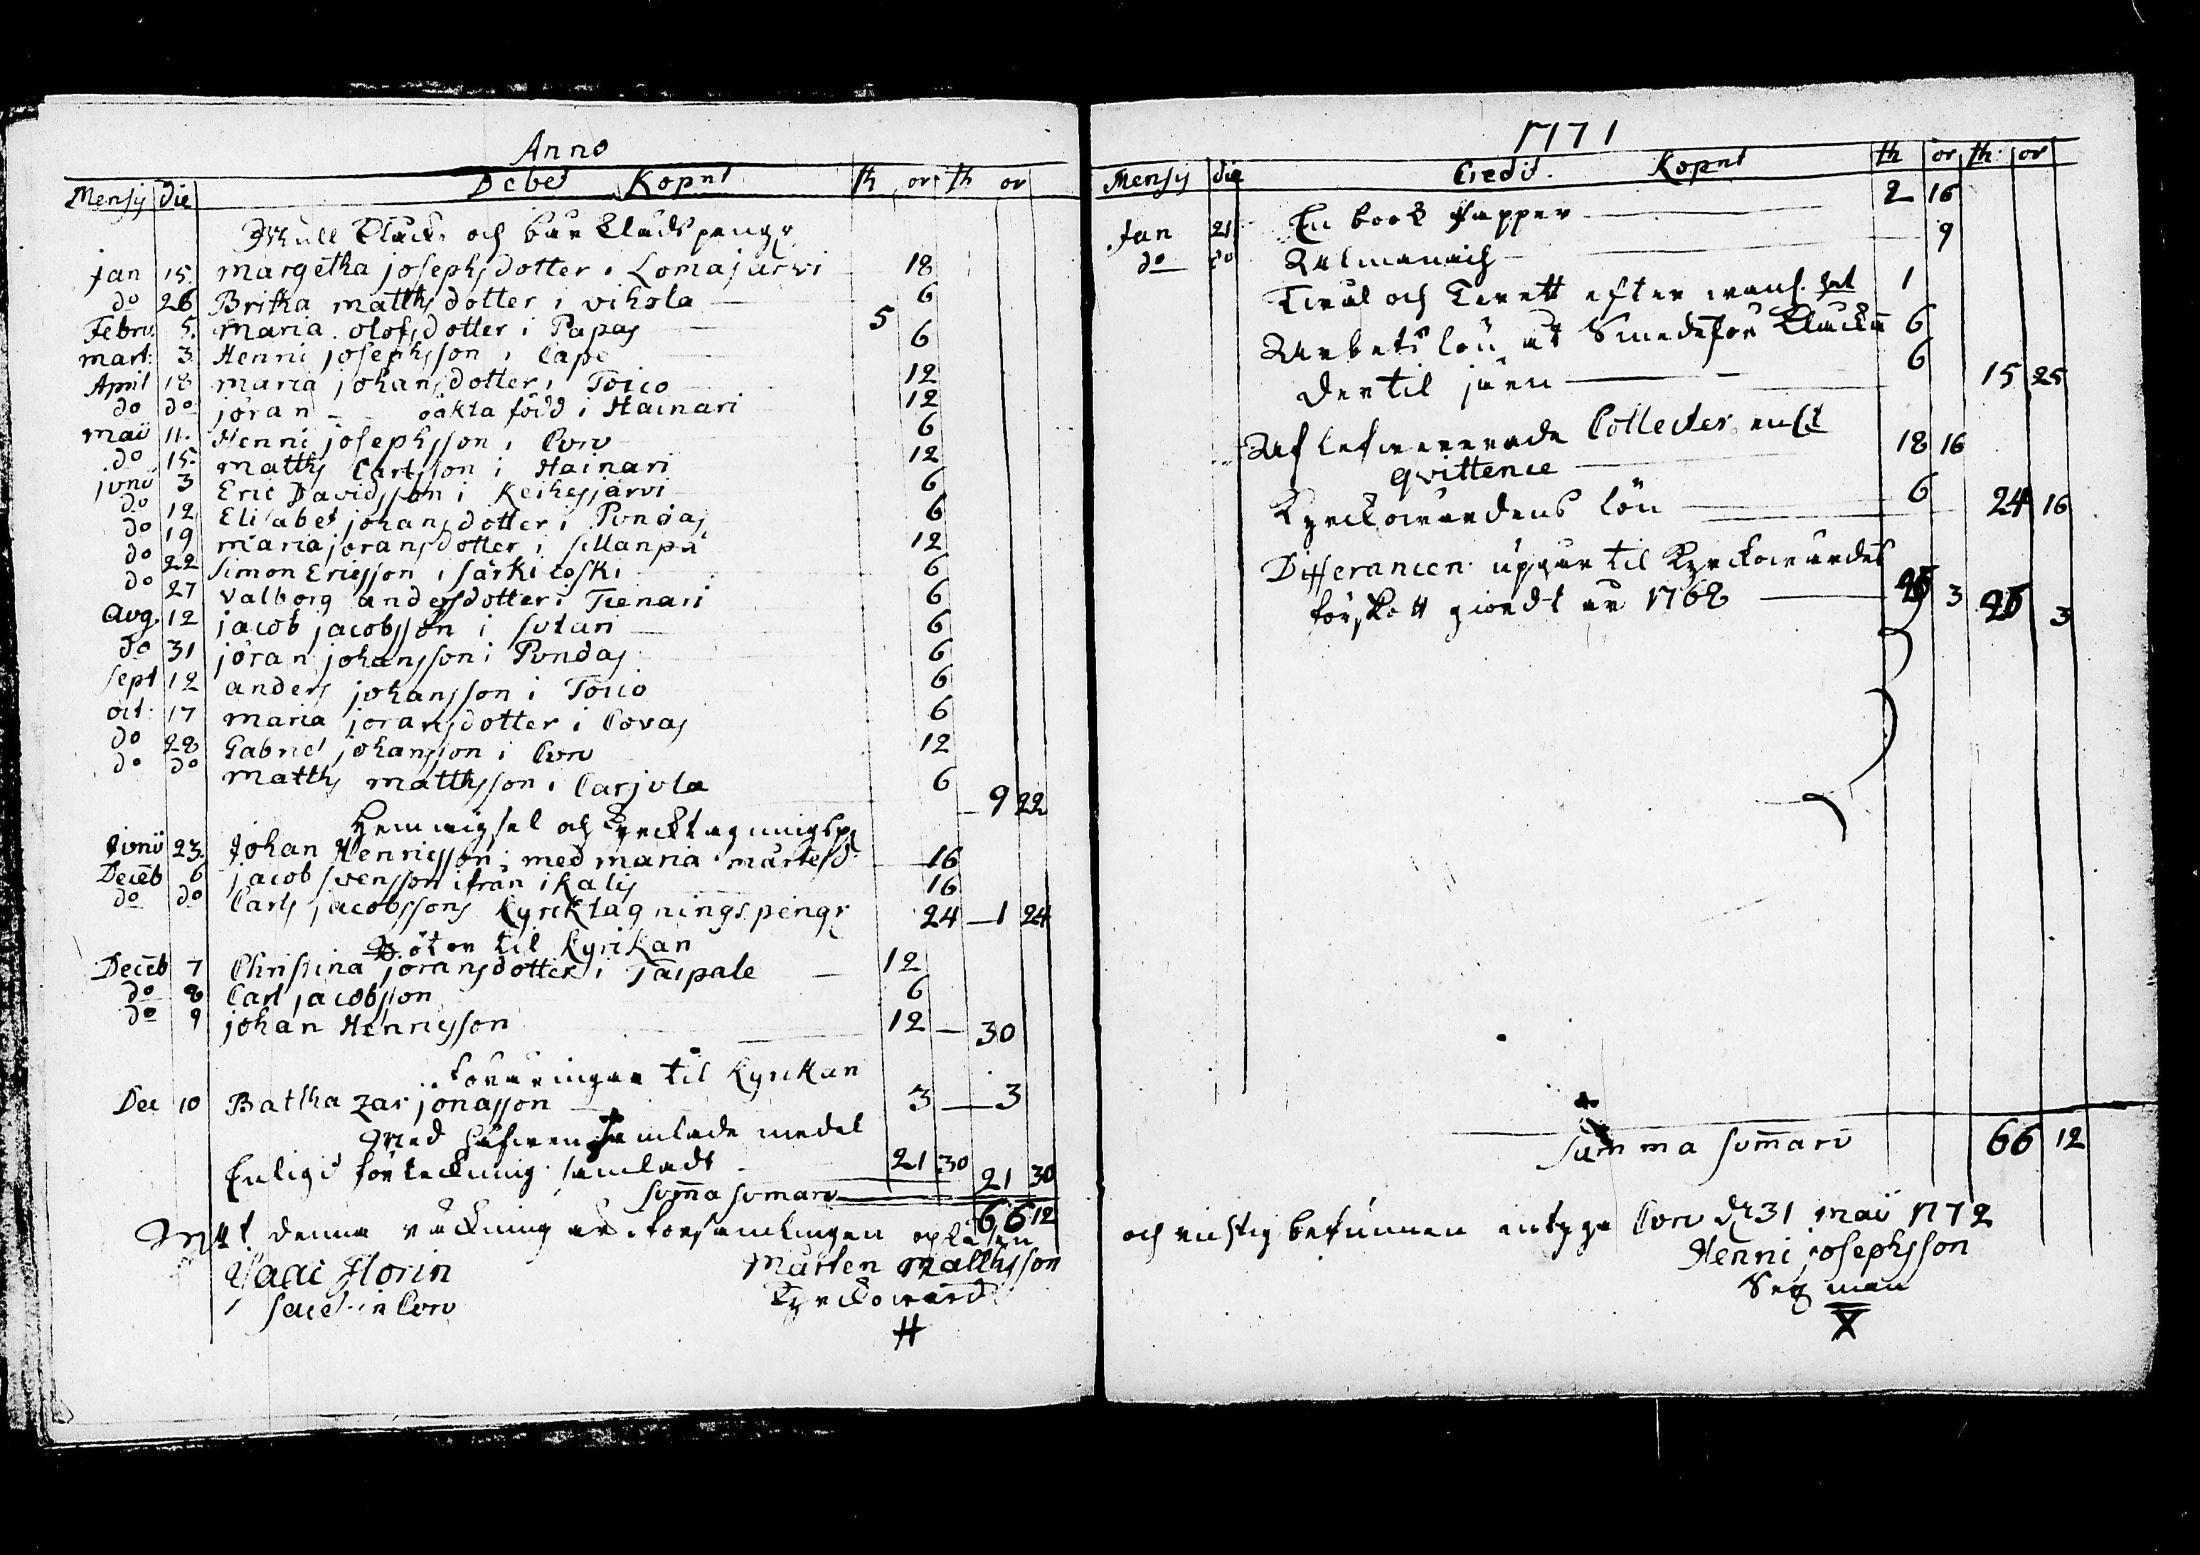 Anno
Mensis die Debet Kopnt th or th or
Mull Klock och bår Klädspengr
Jan 15. margetha josephsdotter i Lomajarvi 18
do 26 Britha matthsdotter i vihola 6
Febru. 5. maria olofsdotter i Papas 5
mart: 3 Henric josephsson i Cape 6
April 18 maria johansdotter i Toiio 12
do do jöran oäkta född i Hainari 12
maii 11. Henric josephsson i Curu 6
do 15. matths Carlsson i Hainari 12
junii 3 Eric Davidsson i Keihesjärvi 6
do 12 Elisabet johansdotter i Pundas 6
do 19 maria joransdotter i sillanpä 12
do 22 Simon Ericsson i särkikoski 6
do 27 Valborg andersdotter i Tienari 6
Aug. 12 jacob jacobsson i sutari 6
do 31 jöran johansson i Pundas 6
Sept 12 anders johansson i Toiio 6
oct: 17 maria joransdotter i Covas 6
do 28 Gabriel johansson i Curu 12
do do matths matthsson i Carjula 6 9 22
och Kyrktagningspr
Junii 23. Johan Henricsson med maria mårtesd 16
Deceb 6 jacob svensson ifrån ikalis 16
do do Carls jacobssons Kyrktagningspengr 24 1 24
Böter til Kyrkan
Deceb 7 Christina joransdotter i Taipale 12
do 8 Carl jacobsson 6
do 9 johan Henricsson 12 30
Foräringar til Kyrkan
Dec 10 Balthazar jonasson 3 3
Med håfwen samlade medel
Enligt förteckning samladt 21 30 21 30
Suma sumaru 66 12
At denna räckning är i forsamlingen oplesen
Isaac Florin Mårten Matthsson
sacel. in Curu Kyrckowärd
H
1771
Mensis die Credit. Kopnt th or th: or
Jan 21 En book Papper 2 16
do do Allmanach 9
Tieral och Terett efter 1
Arbets lön åt Smeden för Klockan 6
Dertil järn 6 15 25
Af lefwererade Collecter enl.
qvittence 18 16
Kyrckowärdens lön 6 24 16
Differancen upgår til Kyrckowärdes
förskott giordt år 1768 3 3
Summa sumaru 66 12
och richtig befunnen intyga Curu d 31 maii 1772
Henric josephsson
Sex man
X